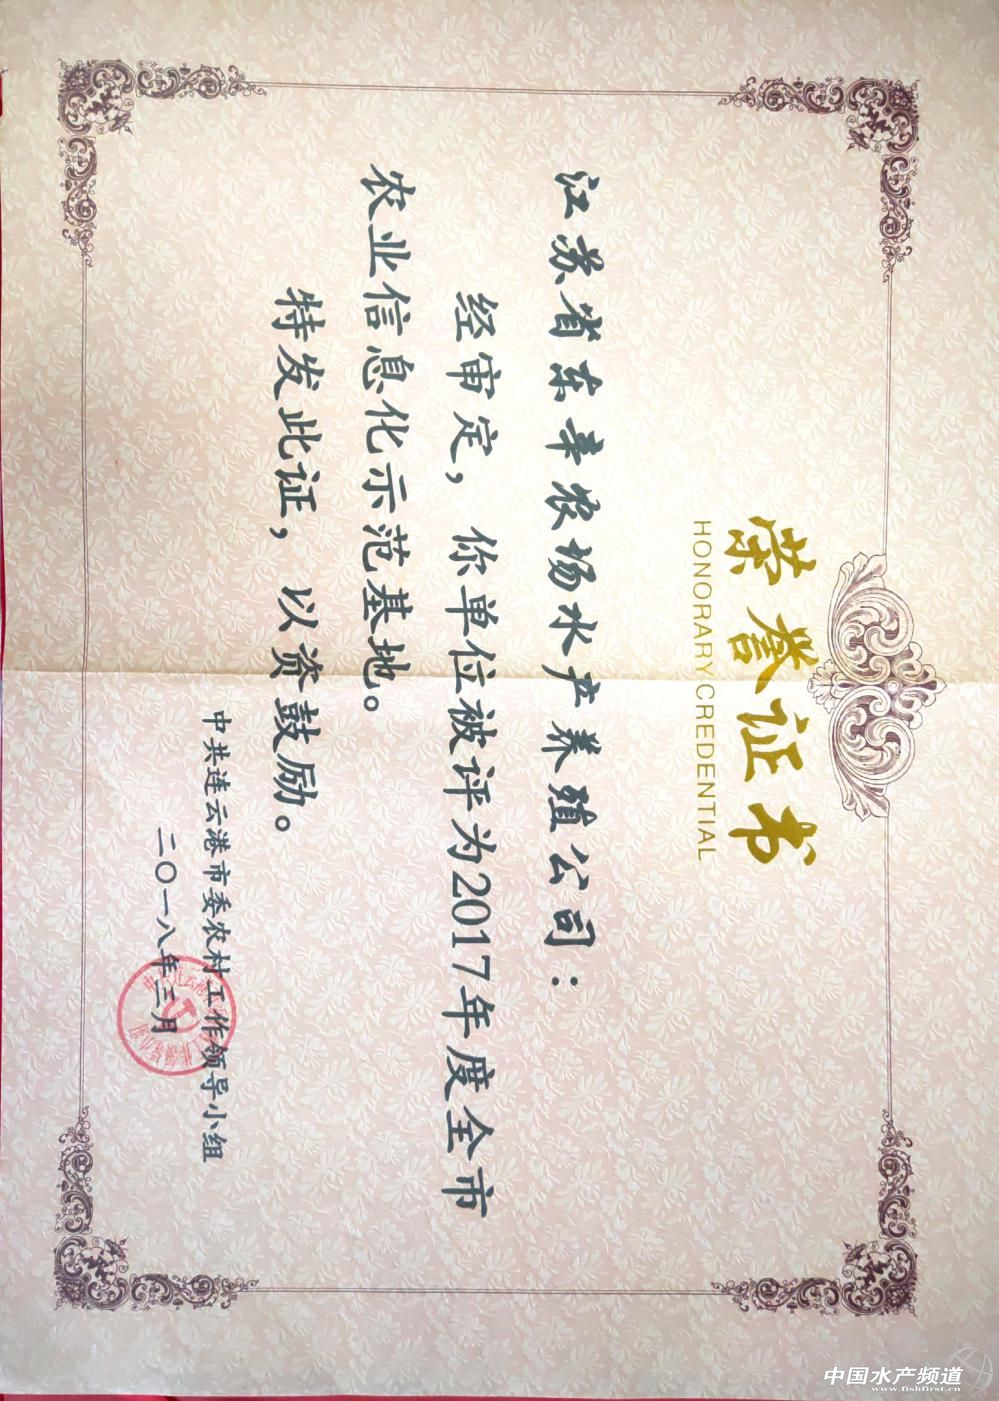 荣誉证书
HONORARY CREDENTIAL
江苏省东辛农场水产养殖公司：
经审定，你单位被评为2017年度全市
农业信息化示范基地。
特发此证，以资鼓励。
中共连云港市委农村工作领导小组
二〇一八年三月
中国水产频道
www.fishfirst.cn